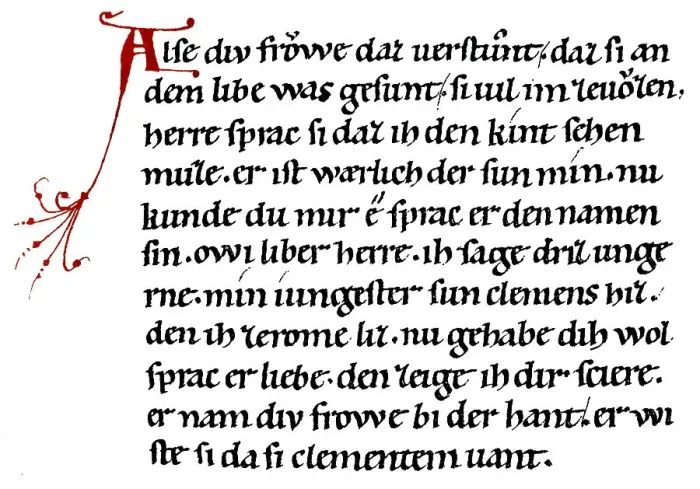 Alſe div frǒwe daz uerſtůnt/. daz ſi an
dem libe was geſunt/. ſi uil im zeuǒzen,
herre ſprac ſi daz ih den kínt ſehen
muͤze. er iſt wærlich der ſun mín. nu
kunde du mir e̋ ſprac er den namen
ſin. owi liber herre. ih ſage driz unge
rne. mín iungeſter ſun clemens hiz.
den ih zerome liz. nu gehabe dih wol
ſprac er liebe. den zeige ih dir ſciere.
er nam div frowe bi der hant/. er wi
ſte ſi da ſi clementem uant.